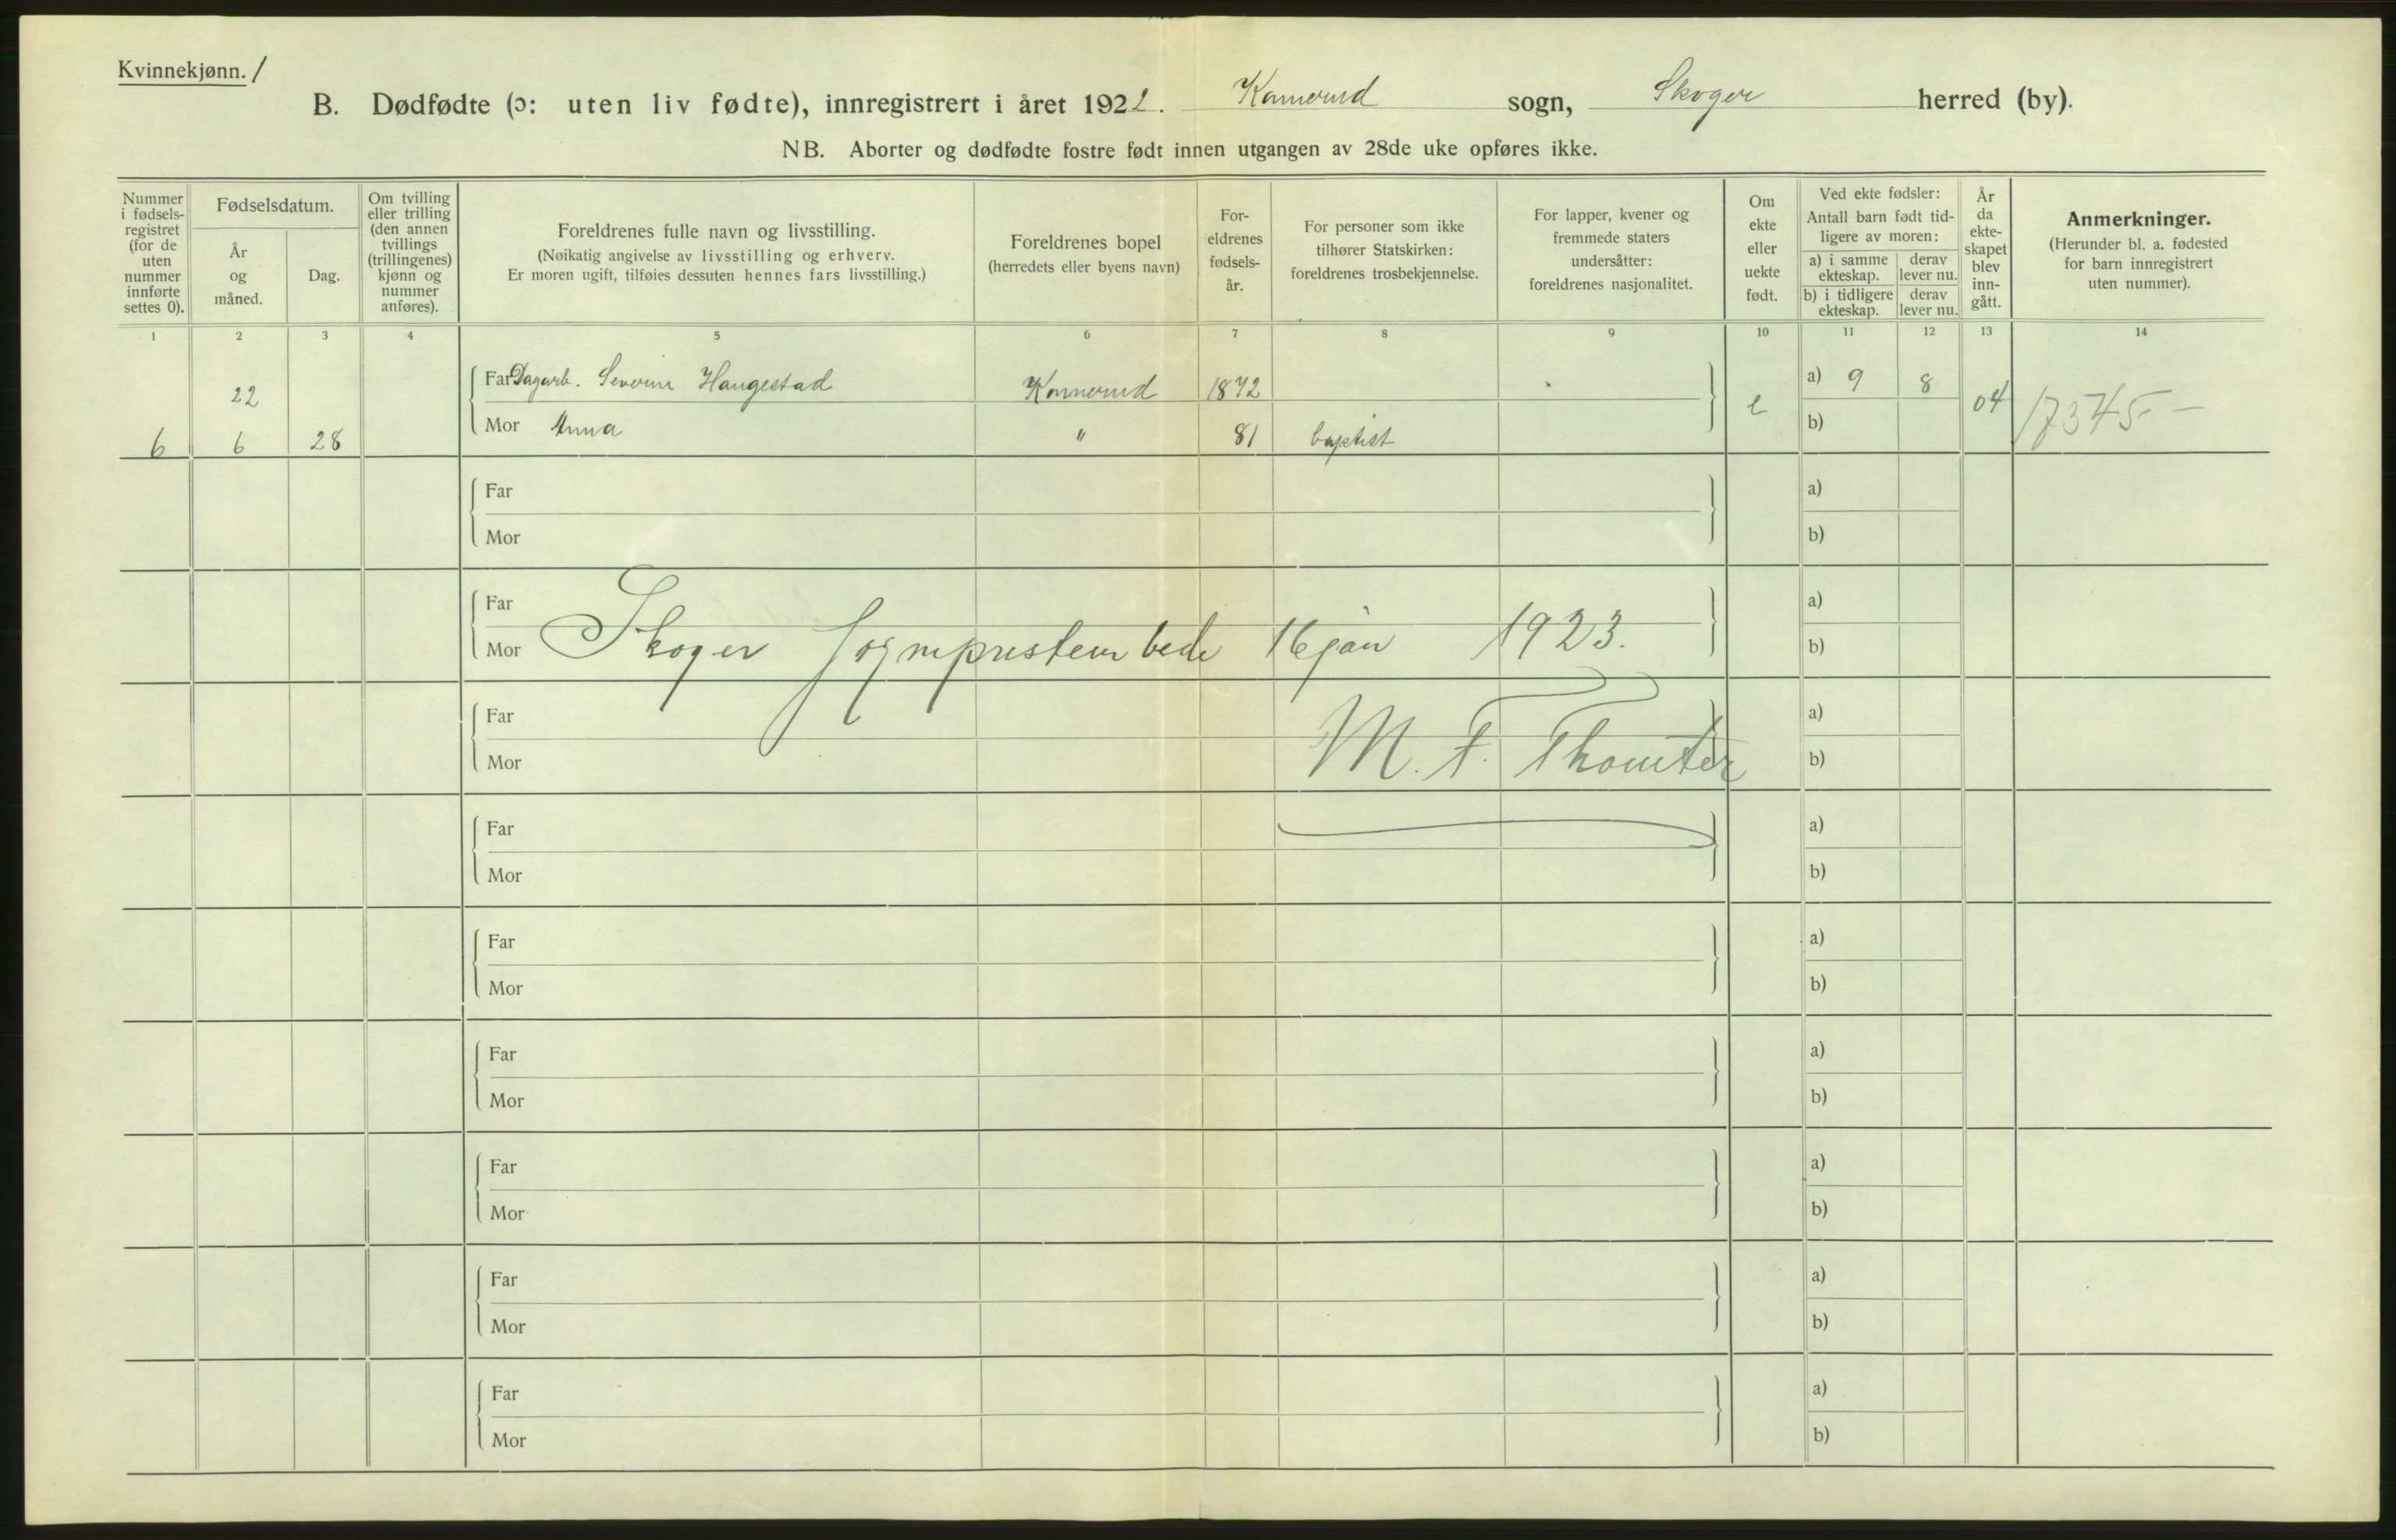 Kvinnekjønn. /
B. Dødfødte (ɔ: uten liv fødte), innregistrert i året 1922. Konnerud sogn, Skoger herred (by).
NB. Aborter og dødfødte fostre født innen utgangen av 28de uke opføres ikke.
Nummer i fødsels-registret (for de uten nummer innførte settes 0).
Fødselsdatum.
År og måned.
Dag.
Om tvilling eller trilling (den annen tvillings (trillingenes) kjønn og nummer anføres).
Foreldrenes fulle navn og livsstilling.
(Nøikatig angivelse av livsstilling og erhverv.
Er moren ugift, tilføies dessuten hennes fars livsstilling.)
Foreldrenes bopel
(herredets eller byens navn)
For-eldrenes fødsels-år.
For personer som ikke tilhører Statskirken: foreldrenes trosbekjennelse.
For lapper, kvener og fremmede staters undersåtter: foreldrenes nasjonalitet.
Om ekte eller uekte født.
Ved ekte fødsler:
Antall barn født tid-ligere av moren:
a) i samme ekteskap. derav lever nu.
b) i tidligere ekteskap. derav lever nu.
År da ekte-skapet blev inn-gått.
Anmerkninger.
(Herunder bl. a. fødested for barn innregistrert uten nummer).
1 2 3 4 5 6 7 8 9 10 11 12 13 14
22 Far Dagarb. Severin Haugestad Konnerud 1872 e a) 9 8 04 17345 -
6 6 28 Mor Anna " 81 baptist b)
Far a)
Mor b)
Far a)
Mor Skoger sogneprestembede 16 jan 1923. b)
Far a)
Mor M. F. Thomter b)
Far a)
Mor b)
Far a)
Mor b)
Far a)
Mor b)
Far a)
Mor b)
Far a)
Mor b)
Far a)
Mor b)